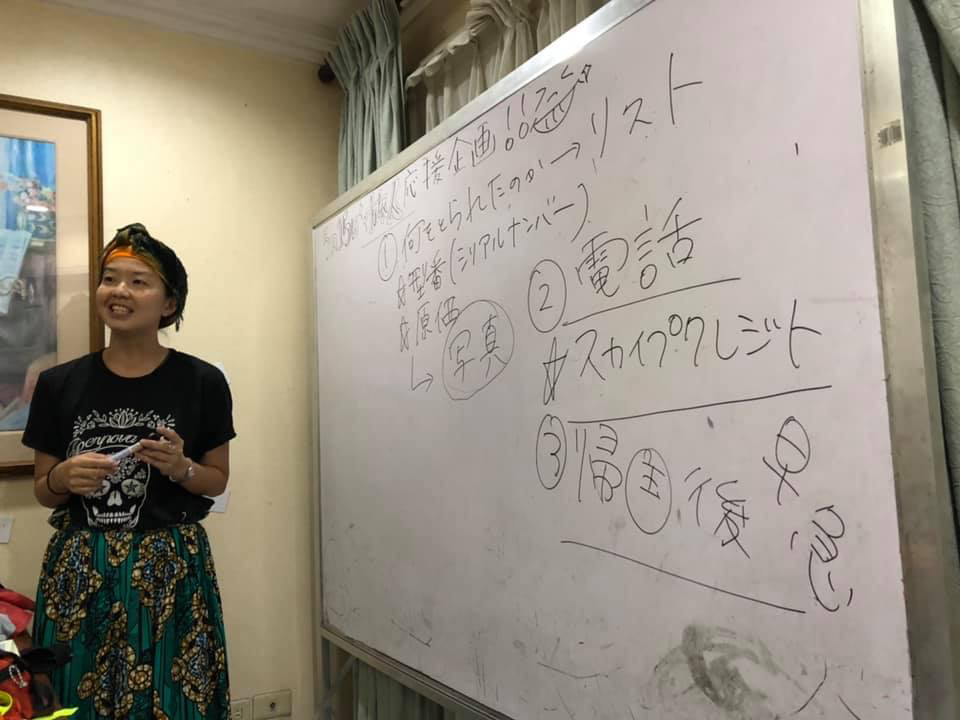 旅人応援企画!!
①何をとられたのか→リスト
☆型番(シリアルナンバー)
☆原価
↳写真
②電話
☆スカイプクレジット
③帰国後早急に